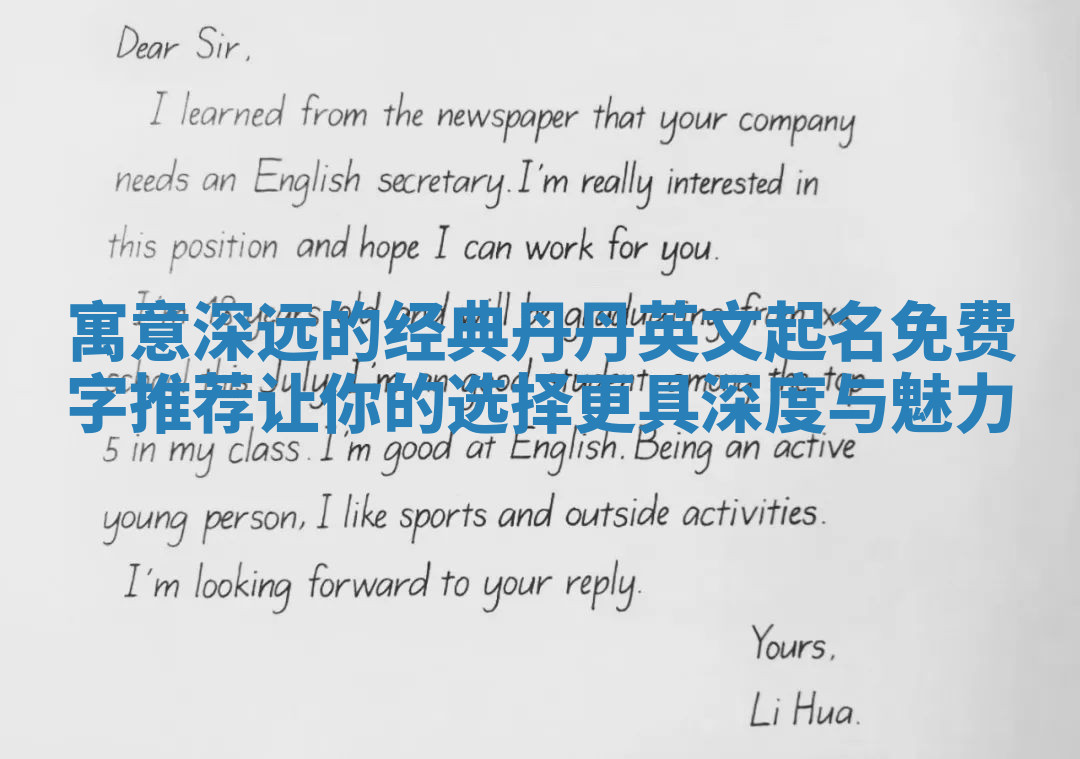 Dear Sir,
I learned from the newspaper that your company
needs an English secretary. I'm really interested in
this position and hope I can work for you.
I'm 18 years old and will be graduating from x
寓意深远的经典丹丹英文起名免费
school this July. I'm an good student, among the top
字推荐让你的选择更具深度与魅力
5 in my class. I'm good at English. Being an active
young person, I like sports and outside activities.
I'm looking forward to your reply.
Yours,
Li Hua.